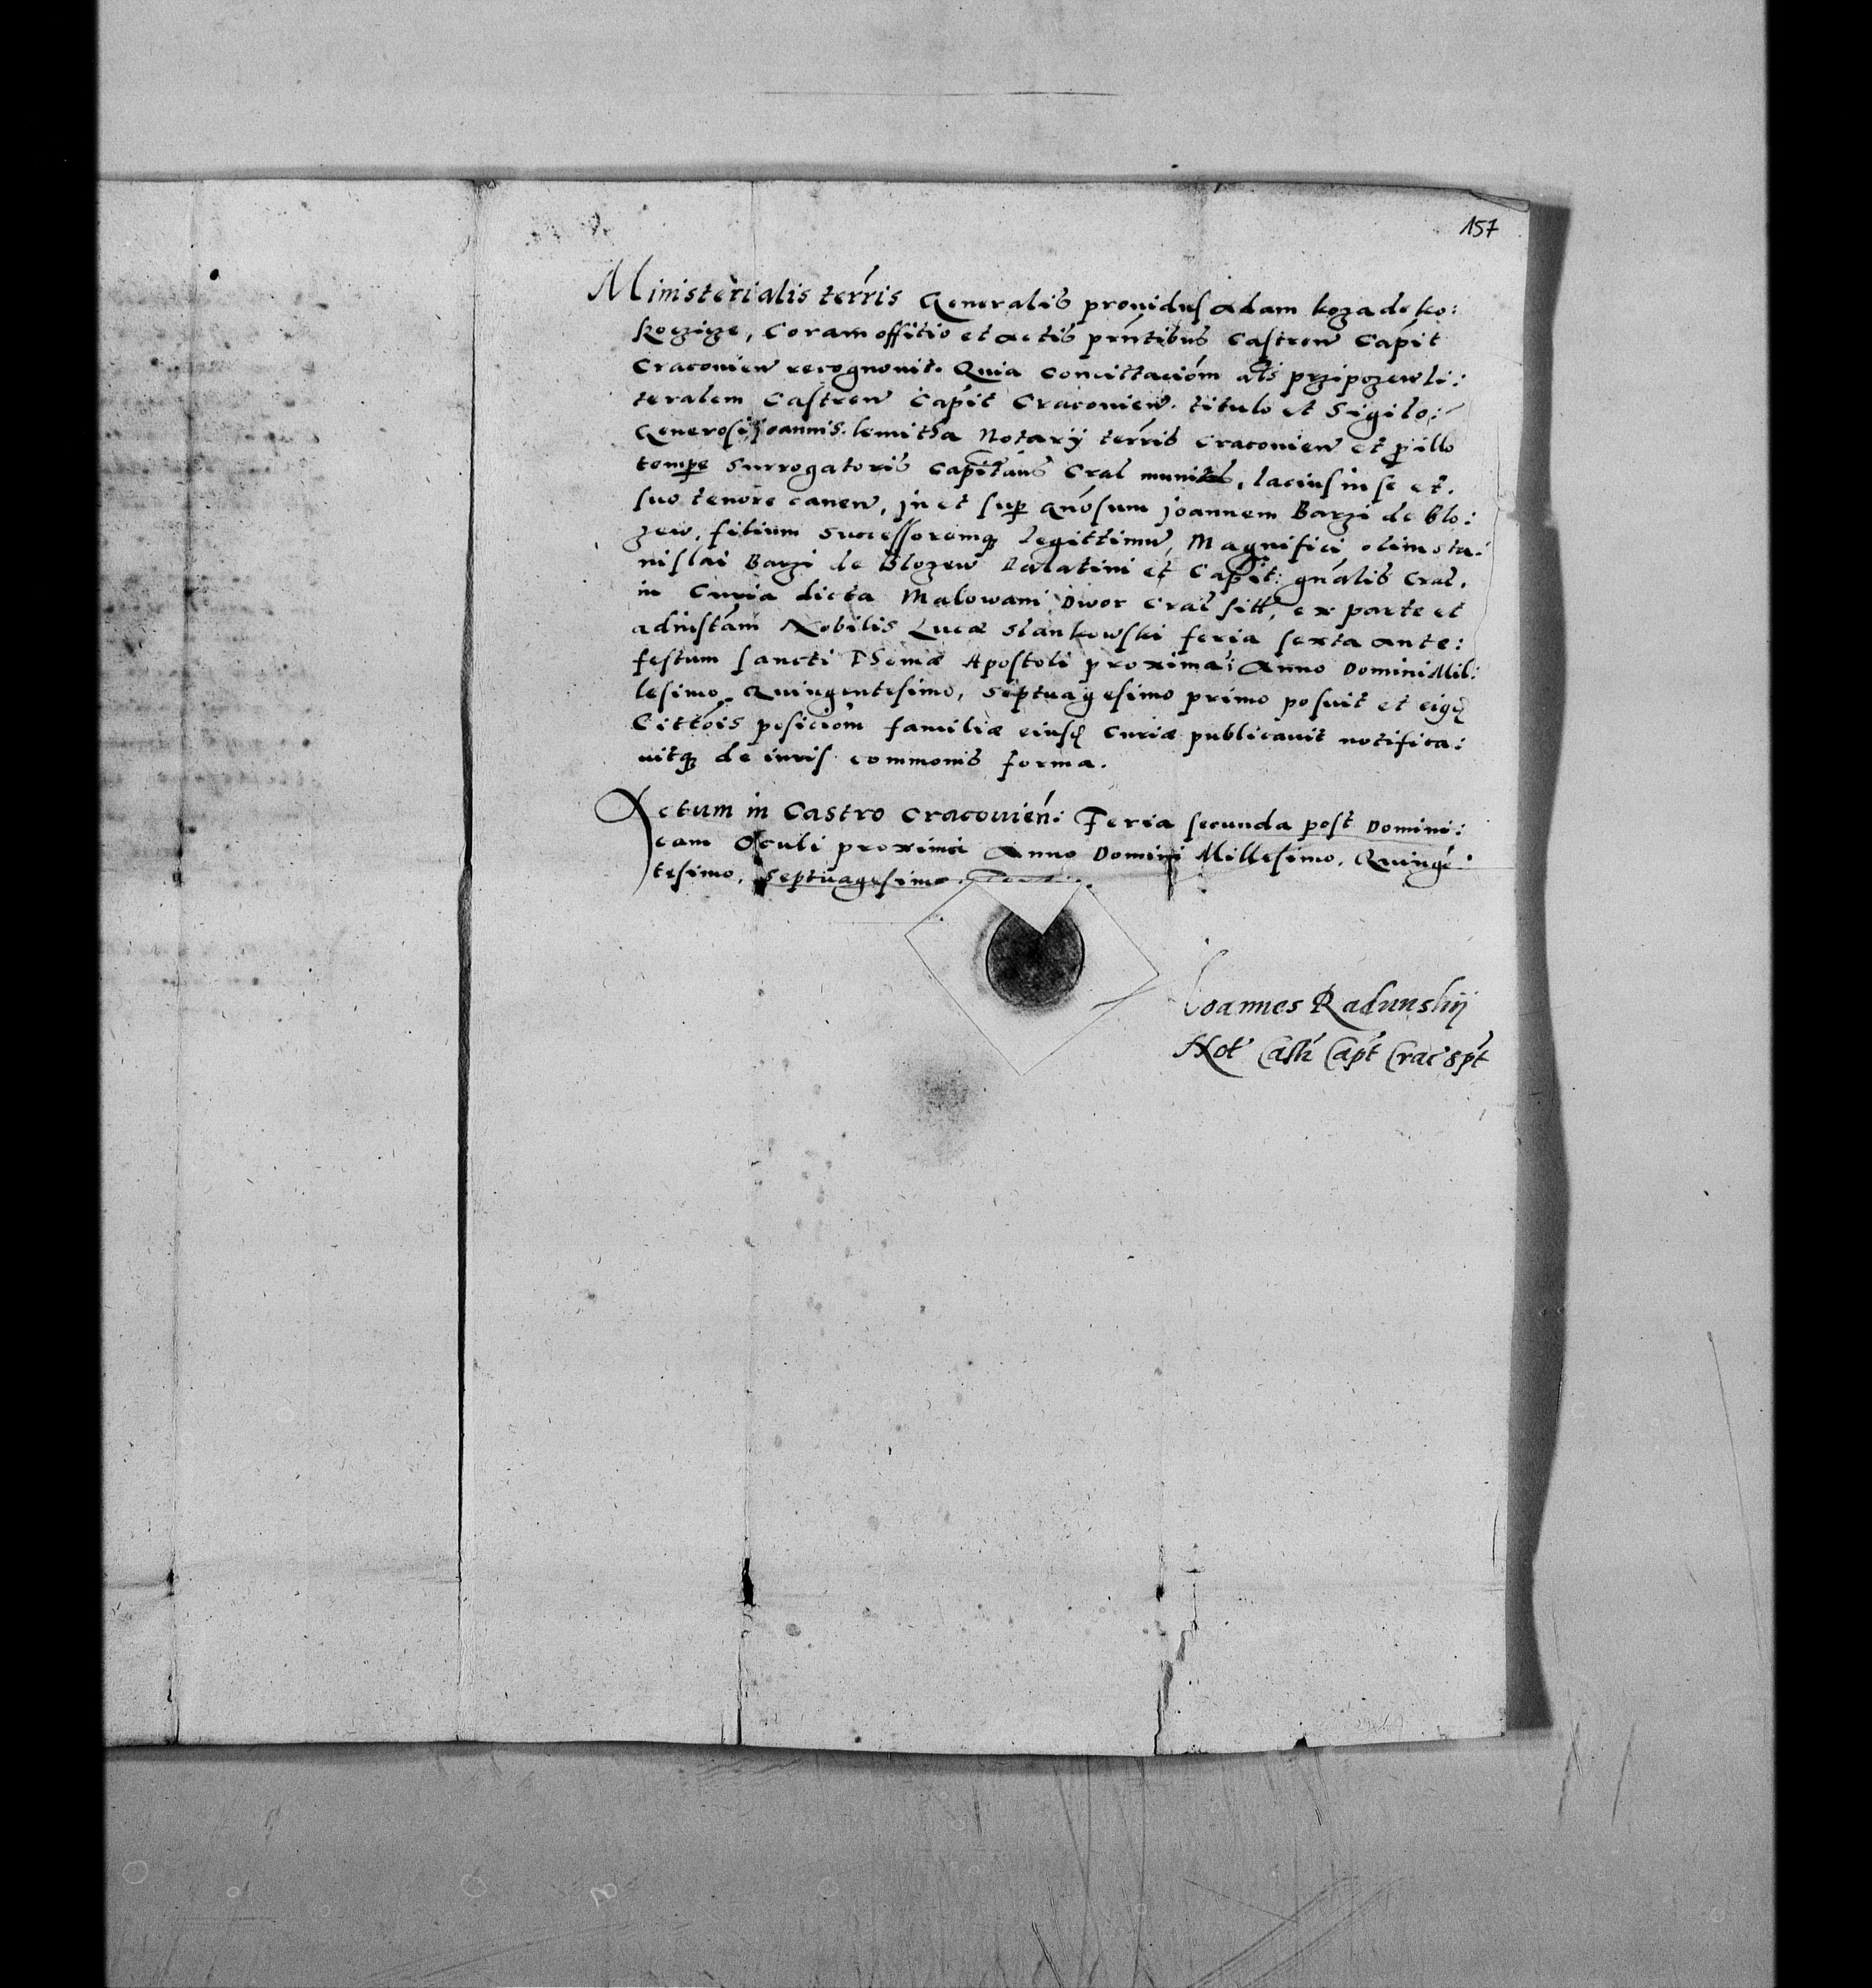 157
Ministerialis terris Generalis prouidus Adam koza de ko:
koczicze, Coram offitio et actis pntibus Castren Capit
Cracouien recognouit. Quia Concittaciom als przipozew li:
teralem Castren Capit Cracouien. titulo et Sigilo:
Generosi Joannis lemitha Notarij terris Cracouien et p illo
tempe Surrogatoris Capitans Cral , lacius in se et.
suo tenore canen, in et sup gnosum joannem Barzi de Blo:
zew, filium Successoremq Legittimu, Magnifici olim sta:
nislai Barzi de Blozew Palatini et Capit: gnalis Cral,
in Curia dicta Malowani Dwor Cral sitt, ex parte et
ad instam Nobilis Lucæ Slankowski feria sexta ante:
festum sancti Thomæ Apostoli proxima: Anno Domini Mil:
lesimo Quingentesimo, Septuagesimo primo posuit et eigd
Cittois posiciom familiæ eiusd Curiæ publicauit notifica:
uitq de iuris commonis forma.
Actum in Castro Cracouien: Feria secunda post Domini:
cam Oculi proxima Anno Domini Millesimo, Quinge
tesimo, Septuagesimo
Joannes Radunskij
Not Castr Capt Crac spt